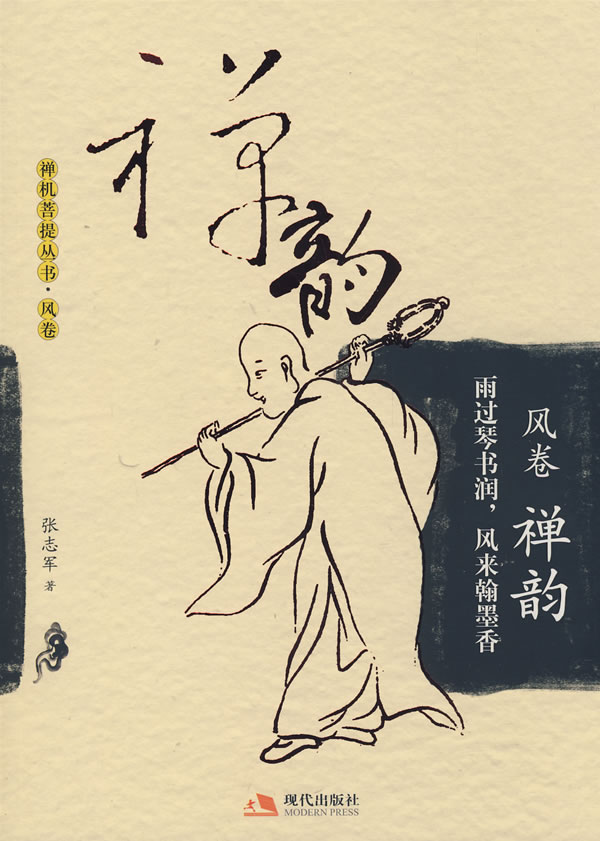 禅韵
禅机菩提丛书·风卷
风卷 禅韵
雨过琴书润，风来翰墨香
张志军 著
现代出版社
MODERN PRESS